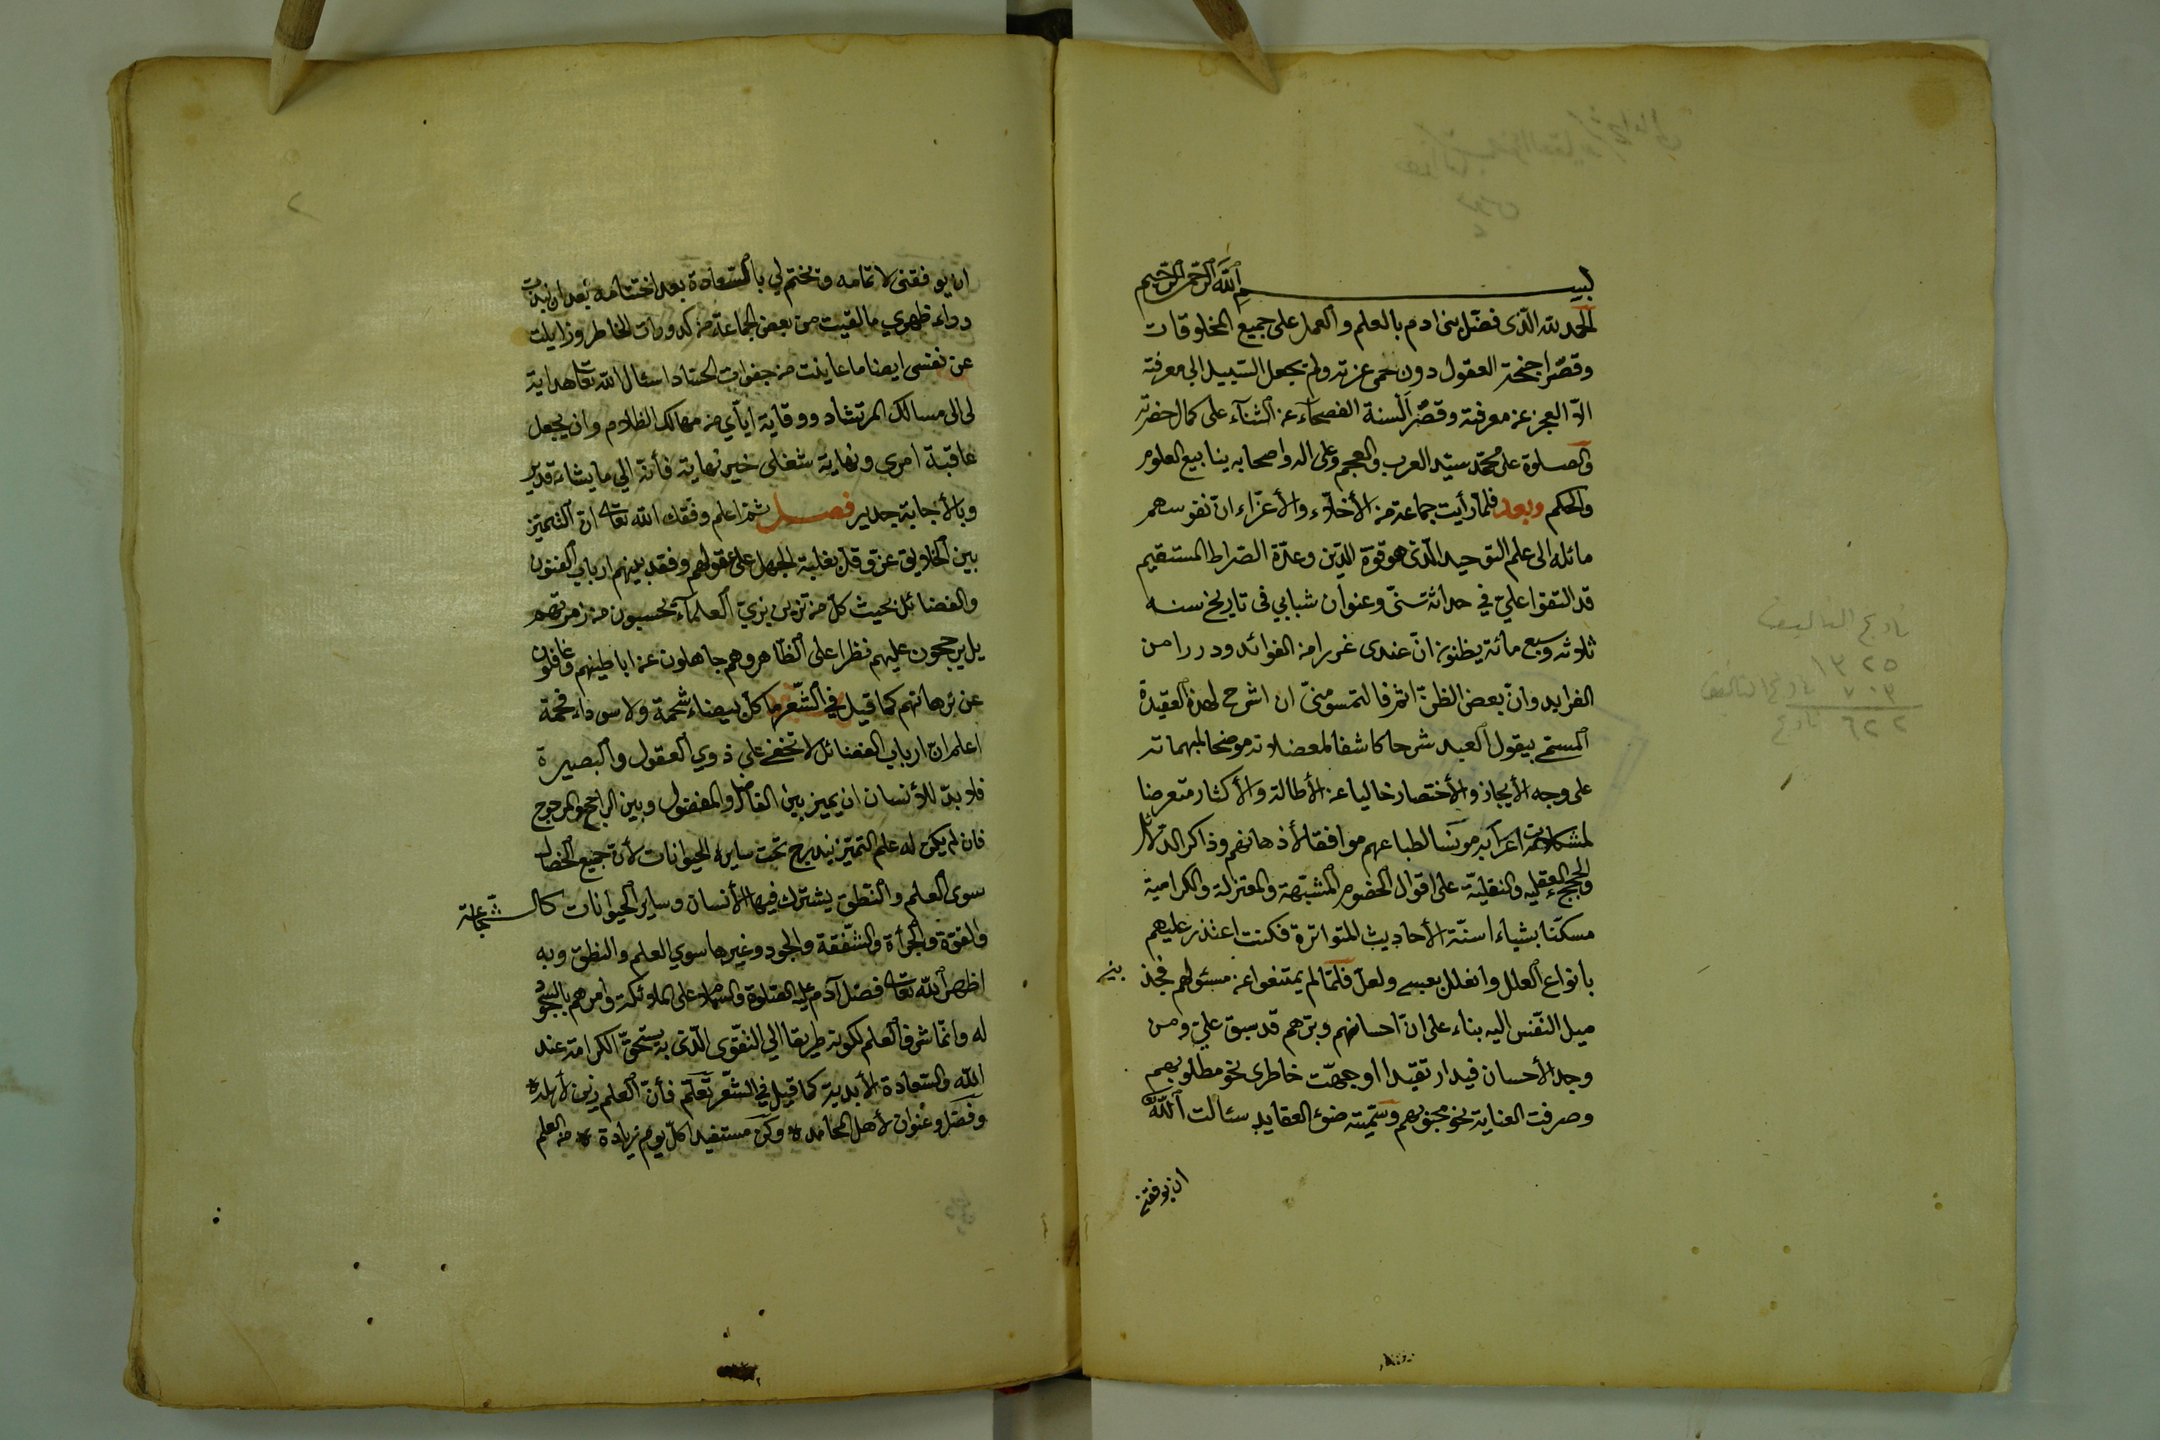 بسم الله الرحمن الرحيم
الحمد لله الذى فضل بنى ادم بالعلم والعمل على جميع المخلوقات
وقصّر اجنحة العقول دون حمى عزته ولم يجعل السبيل الى معرفته
الا العجز عن معرفته وقصّر ألسنة الفصحآء عن الثنآء على كمال حضرته
والصلوة على محمّد سيّد العرب والعجم وعلى اله واصحابه ينابيع العلوم
والحكم وبعد فلمّا رأيت جماعة من الأخلاّء والأعزّاء ان نفوسهم
مائلة الى علم التوحيد الّذى هو قوّة للدّين وعدّة الصّراط المستقيم
قد التفوا عليّ في حداثة سنّى وعنوان شبابي فى تاريخ سنه
ثلاثه وسبع مائة يظنون انّ عندى غررا من الفوائد ودررا من
الفرايد وانّ بعض الظنّ اثم فالتمسوا منّى ان اشرح لهذه العقيدة
المستمى بيقول العبد شرحا كاشفا لمعضلاته موضحا لمبهماته
على وجه الأيجاز والأختصار خاليا عن الأطالة والأكثار متعرضا
لمشكلات اعرابه مونسا لطباعهم موافقا لأذهانهم وذاكر الدّلائل
والحجج العقليه والنقليّة على اقوال الخصوم المشبّهة والمعتزلة والكرامية
مسكتا بشياء اسنّة الأحاديث المتواترة فكنت اعتذر عليهم
بانواع العلل واتعلل بعسى ولعل فلمّا لم يمتنعوا عن مسئولهم فجذبنى
ميل النّفس اليه بناء على انّ احسانهم وبرّهم قد سبق عليّ ومن
وجد الأحسان قيدا تقيدا اوجهّت خاطرى نحو مطلوبهم
وصرفت العناية نحو محبوبهم وسمّيته ضوء العقايد سئالت الله
ان يوفقني
تاريخ التاليف
١٣٢٥
٧٠٣ تاريخ التاليف
٦٢٢ تاريخ
٢
ان يوفقنى لاتمامه ويختم لي بالسّعادة بعد اختتامه بعد ان نبذت
وراء ظهري ما لقيت من بعض الجماعة من كدورات الخاطر وزايلت
عن نفسى ايضا ما عاينت من جفوات الحسّاد اسئال الله تعا هداية
لى الى مسالك الرشاد ووقاية ايّاي من مهالك الظلام وان يجعل
عاقبة امري ونهاية شغلى خير نهاية فأنه الي ما يشاء قدير
وبالأجابة جدير فصل ثم اعلم وفقك الله تعا ان التميّز
بين الخلايق عزّ وقلّ بغلبة الجهل على عقولهم وفقد بينهم ارباب الفنون
والفضائل بحيث كل من تزين بزيّ العلمآء يحسبون من زمرتهم
بل يرجحون عليهم نظرا على الظّاهر وهم جاهلون عن اباطينهم وغافلون
عن برهانهم كما قيل في الشعر ما كل بيضاء شحمة ولا سوداء فحمة
اعلم انّ ارباب الفضائل لا تخفى على ذوي العقول والبصيرة
فلا بدّ للأنسان ان يميز بين الفاضل والمفضول وبين الراجح والمرجوح
فان لم يكن له علم التميّز يندرج تحت ساير الحيوانات لأن جميع الخصال
سوى العلم والنّطق يشترك فيها الأنسان وساير الحيوانات كالشّجاعة
والقوّة والجرأة والشّفقة والجود وغيرها سوي العلم والنطق وبه
اظهر الله تعا فضل آدم عليه الصّلوة والسّلام على الملائكة وامرهم بالسّجود
له وانّما شرف العلم لكونه طريقا الي التقوى الّذى به يستحقّ الكرامة عند
الله والسّعادة الأبدية كما قيل في الشّعر تعلّم فأنّ العلم زين لأهله
وفضل وعنوان لأهل المحامد وكن مستفيدا كل يوم زيادة من العلم